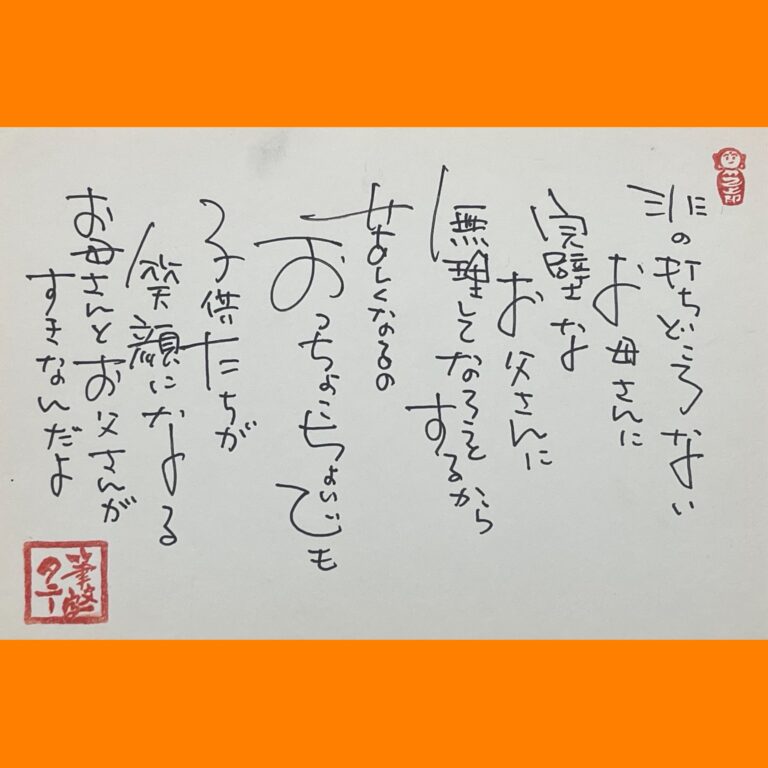 非の打ちどころない
お母さんに
完璧な
お父さんに
無理してなろうと
するから
苦しくなるの
おっちょこちょいでも
子供たちが
笑顔になる
お母さんとお父さんが
すきなんだよ